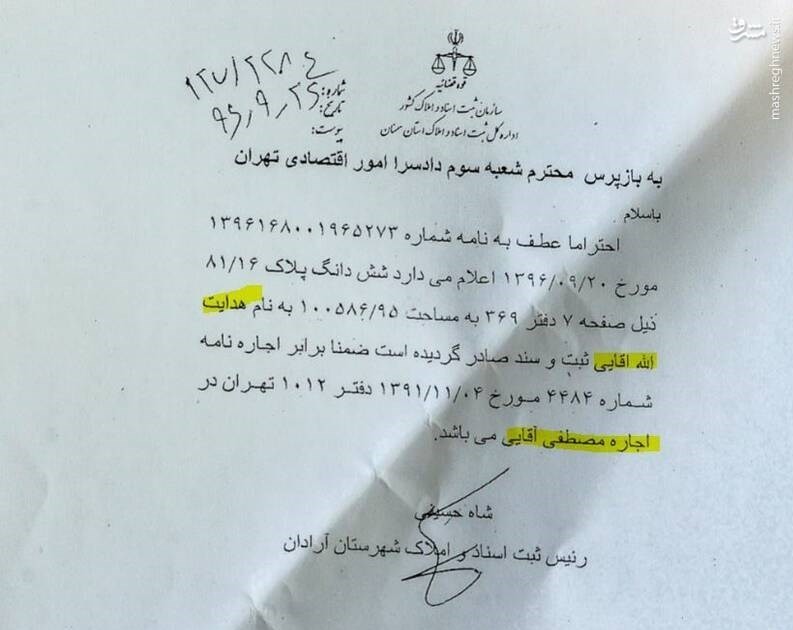 قوه قضائیه
سازمان ثبت اسناد و املاک کشور
اداره کل ثبت اسناد و املاک استان سمنان
شماره: ۱۲۷/۲۲۸۰۴
تاریخ: ۹۶٫۹٫۲۶
پیوست:
به بازپرس محترم شعبه سوم دادسرا امور اقتصادی تهران
باسلام
احتراما عطف به نامه شماره ۱۳۹۶۱۶۸۰۰۱۹۶۵۲۷۳
مورخ ۱۳۹۶/۰۹/۲۰ اعلام می دارد شش دانگ پلاک ۸۱/۱۶
ذیل صفحه ۷ دفتر ۳۶۹ به مساحت ۱۰۰۵۸۶/۹۵ به نام هدایت
الله اقایی ثبت و سند صادر گردیده است ضمنا برابر اجاره نامه
شماره ۴۴۸۴ مورخ ۱۳۹۱/۱۱/۰۴ دفتر ۱۰۱۲ تهران در
اجاره مصطفی آقایی می باشد.
شاه حسینی
رئیس ثبت اسناد و املاک شهرستان آرادان
مشرق
mashreghnews.ir